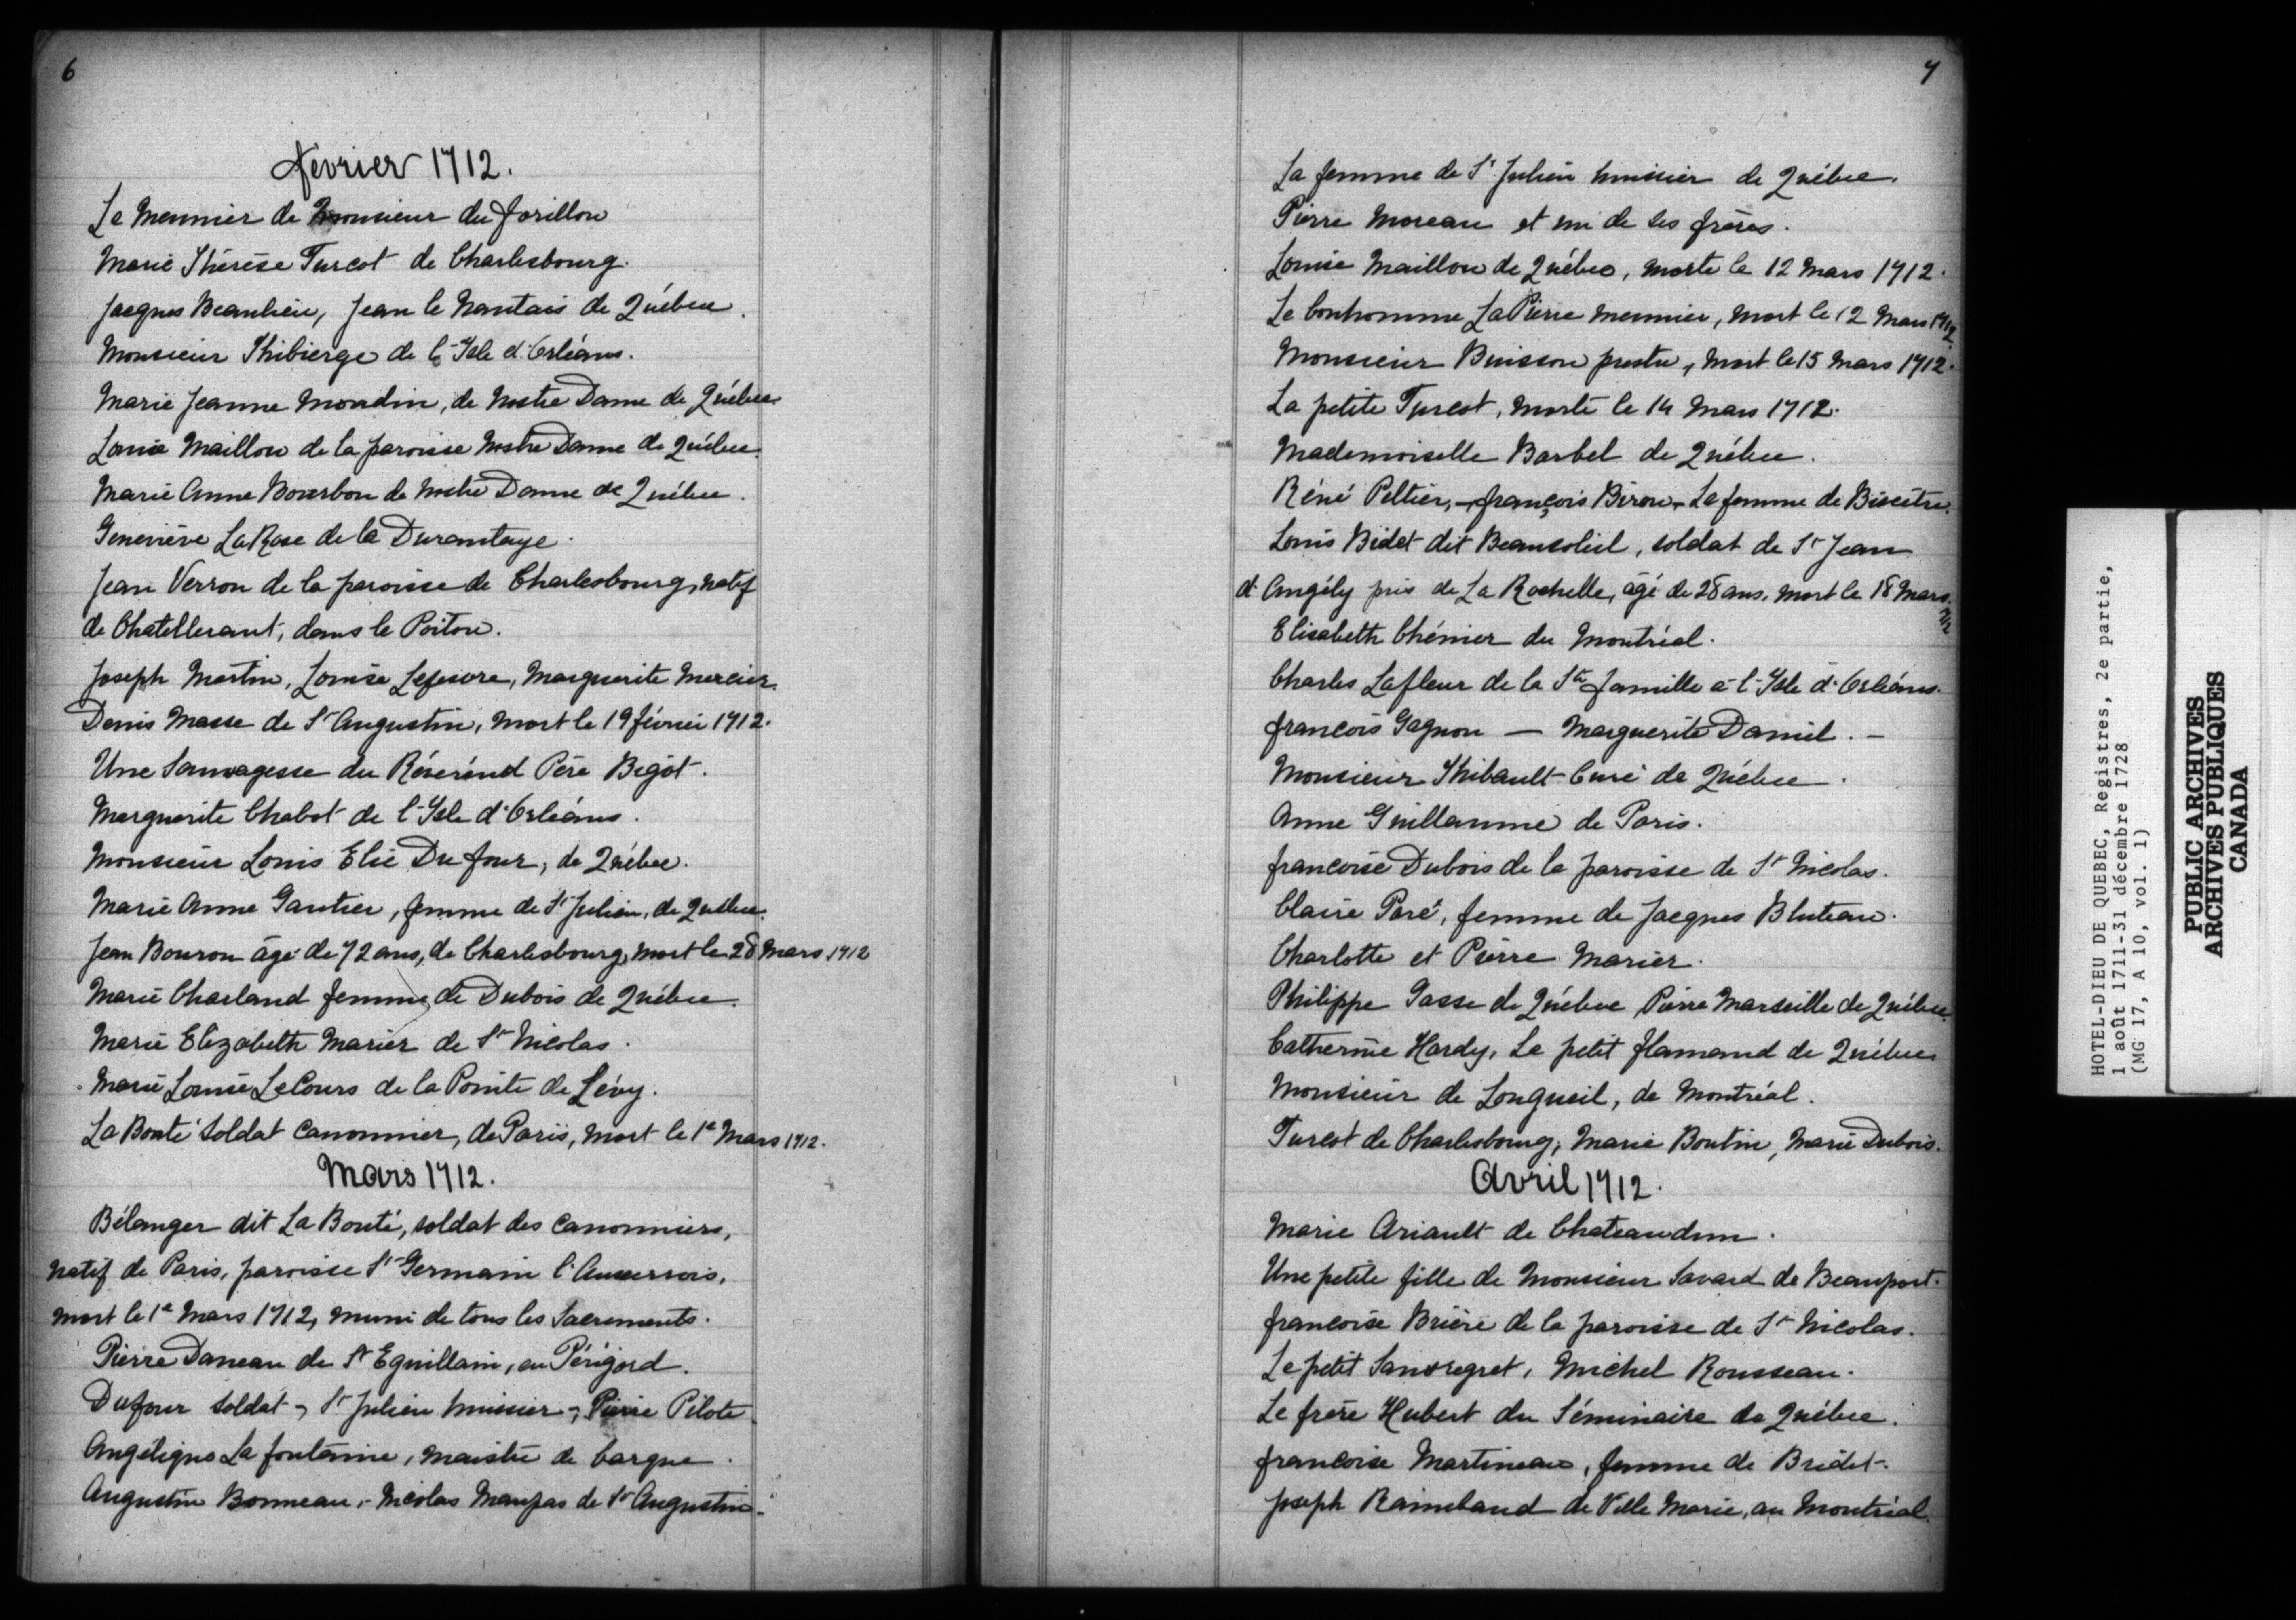 6
février 1712.
Le Meunier de Monsieur du forillon
Marie Thérèse Turcot de Charlesbourg.
Jacques Beaulieu, Jean le Nantais de Québec.
Monsieur Thibierge de l'Isle d'Orléans.
Marie Jeanne Mondin, de Nostre Dame de Québec.
Louise Maillou de la paroisse Nostre Dame de Québec.
Marie Anne Bourbon de Nostre Dame de Québec.
Geneviève LaRose de la Durantaye.
Jean Verron de la paroisse de Charlesbourg, natif
de Chatellerant, dans le Poitou.
Joseph Martin, Louise Lefesvre, Marguerite Mercier.
Denis Masse de St Augustin, mort le 19 février 1712.
Une Sauvagesse du Révérend Père Bigot.
Marguerite Chabot de l'Isle d'Orléans.
Monsieur Louis Elie Du four, de Québec.
Marie Anne Gautier, femme de St Julien, de Québec.
Jean Bouron âgé de 72 ans, de Charlesbourg, mort le 28 Mars 1712
Marie Charland femme de Dubois de Québec.
Marie Elizabeth Marier de St Nicolas.
Marie Louise LeCours de la Pointe de Lévy.
La Bonté soldat canonnier, de Paris, mort le 1e Mars 1712.
Mars 1712.
Bélanger dit La Bonté, soldat des canonniers,
natif de Paris, paroisse St Germain l'Auxerrois,
mort le 1e Mars 1712, muni de tous les Sacrements.
Pierre Daneau de St Eguillain, en Périgord.
Dufour soldat, St Julien huissier, Pierre Pilote.
Angélique La fontaine, maistre de barque.
Augustin Bonneau, Nicolas Maupas de St Augustin.
7
La femme de St Julien huissier de Québec.
Pierre Moreau et un de ses frères.
Louise Maillou de Québec, morte le 12 Mars 1712.
Le bonhomme LaPierre meunier, mort le 12 Mars 1712.
Monsieur Buisson prestre, mort le 15 Mars 1712.
La petite Turcot, morte le 14 Mars 1712.
Mademoiselle Barbel de Québec.
Réné Peltier, - françois Biron - La femme de Bicêtre.
Louis Bidet dit Beausoleil, soldat de St Jean
d'Angély près de La Rochelle, âgé de 28 ans, mort le 18 Mars 1712
Elisabeth Chénier du Montréal.
Charles Lafleur de la Ste famille à l'Isle d'Orléans.
françois Gagnon — Marguerite Daniel. —
Monsieur Thibault Curé de Québec.
Anne Guillaume de Paris.
françoise Dubois de la paroisse de St Nicolas.
Claire Paré, femme de Jacques Bluteau.
Charlotte et Pierre Marier.
Philippe Gasse de Québec Pierre Marseille de Québec.
Catherine Hardy, Le petit flamand de Québec.
Monsieur de Longueil, de Montréal.
Turcot de Charlesbourg, Marie Boutin, Marie Dubois.
Avril 1712.
Marie Ariault de Chateaudun.
Une petite fille de Monsieur Savard de Beauport.
françoise Brière de la paroisse de St Nicolas.
Le petit Sansregret, Michel Rousseau.
Le frère Hubert du Séminaire de Québec.
françoise Martineau, femme de Bridet.
Joseph Raimbaud de Ville Marie, au Montréal.
HOTEL-DIEU DE QUEBEC, Registres, 2e partie,
1 août 1711-31 décembre 1728
(MG 17, A 10, vol. 1)
PUBLIC ARCHIVES
ARCHIVES PUBLIQUES
CANADA